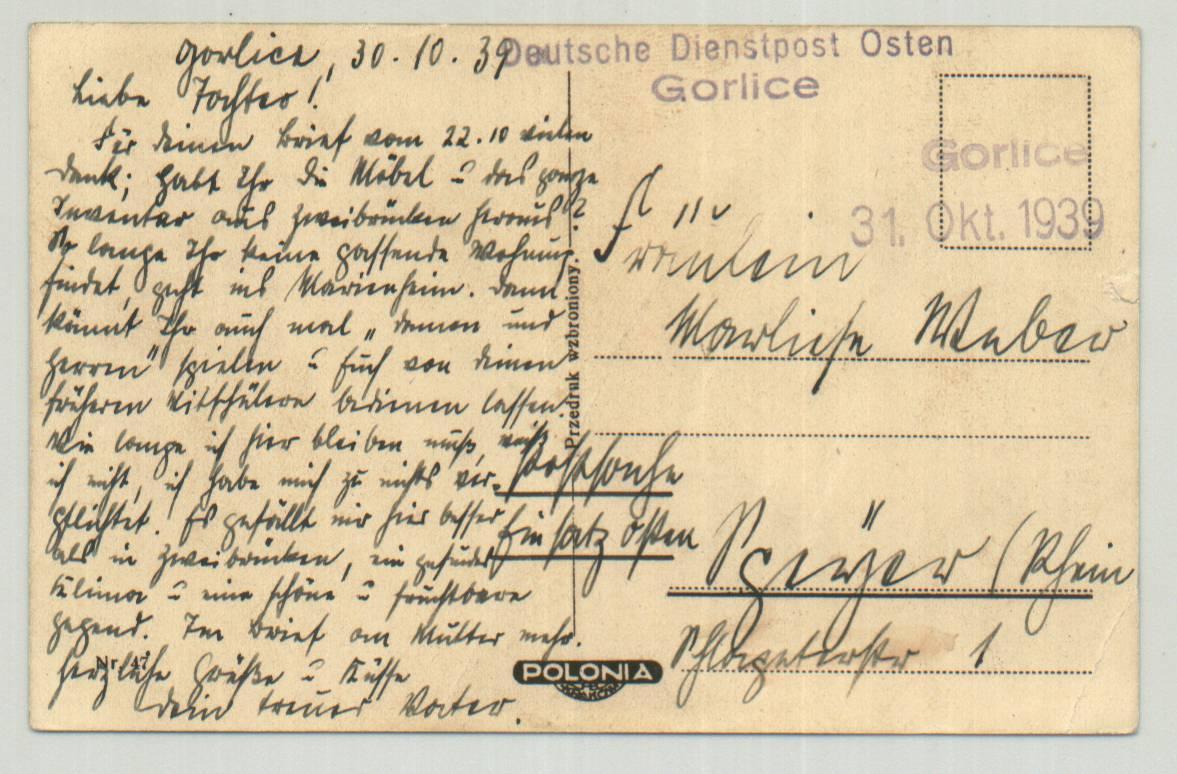 Gorlice, 30.10.39
Liebe Tochter!
Für deinen Brief vom 22.10 vielen
Dank; habt Ihr die Möbel u das ganze
Inventar aus Zweibrücken heraus?
So lange Ihr keine passende Wohnung
findet, geht ins Marienheim. Dann
könnt Ihr auch mal „Damen und
Herren“ spielen u Euch von deinen
früheren Mitschülern bedienen lassen.
Wie lange ich hier bleiben muß, weiß
ich nicht, ich habe mich zu nichts ver-
pflichtet. Es gefällt mir hier besser
als in Zweibrücken, ein gesundes
Klima u eine schöne u fruchtbare
Gegend. Im Brief an Mutter mehr.
Herzliche Grüße u Küsse
Dein treuer Vater.
Nr. 47
Deutsche Dienstpost Osten
Gorlice
Gorlice
31. Okt. 1939
Fräulein
Marliese Weber
Postsache
Einsatz Osten
Speyer (Rhein
Schlageterstr 1
Przedruk wzbroniony.
POLONIA